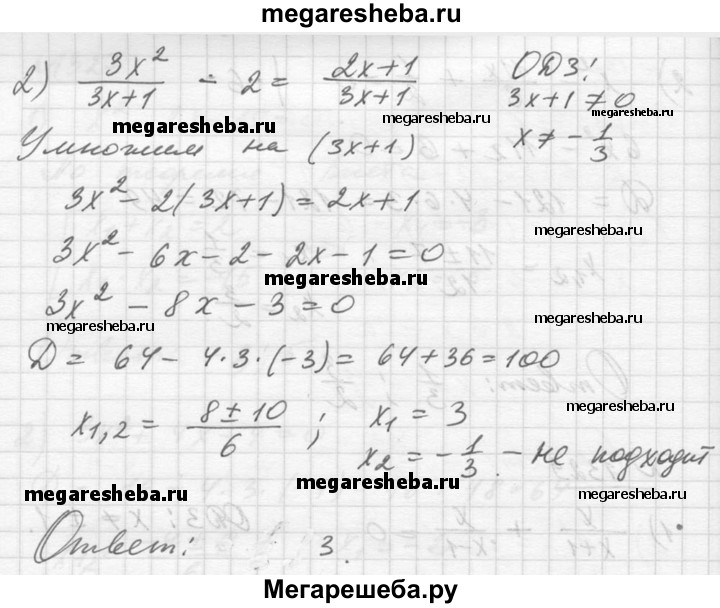 megaresheba.ru
2) 3x²/(3x+1) - 2 = (2x+1)/(3x+1) ОДЗ:
3x+1 ≠ 0
megaresheba.ru
megaresheba.ru
Умножим на (3x+1) x ≠ -1/3
3x² - 2(3x+1) = 2x+1
megaresheba.ru
megaresheba.ru
3x² - 6x - 2 - 2x - 1 = 0
megaresheba.ru
3x² - 8x - 3 = 0
megaresheba.ru
megaresheba.ru
Д = 64 - 4·3·(-3) = 64 + 36 = 100
megaresheba.ru
x1,2 = (8 ± 10)/6 ; x1 = 3
x2 = -1/3 - не подходит
megaresheba.ru
megaresheba.ru
megaresheba.ru
Ответ: 3.
megaresheba.ru
Мегарешеба.ру